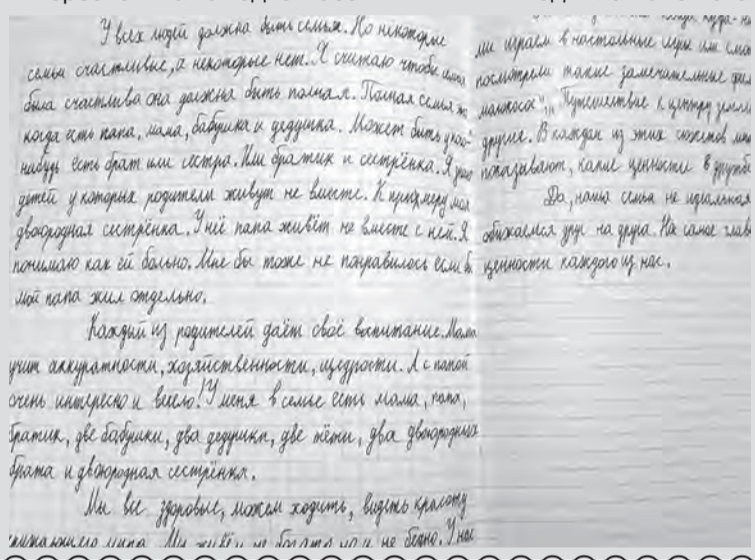 У всех людей должна быть семья. Но некоторые
семьи счастливые, а некоторые нет. Я считаю чтобы семья
была счастлива она должна быть полная. Полная семья
когда есть папа, мама, бабушка и дедушка. Может быть у кого-
нибудь есть брат или сестра. Или братик и сестрёнка. Я знаю
детей у которых родители живут не вместе. К примеру моя
двоюродная сестрёнка. У неё папа живёт не вместе с ней. Я
понимаю как ей больно. Мне бы тоже не понравилось если б
мой папа жил отдельно.
Каждый из родителей даёт своё воспитание. Мама
учит аккуратности, хозяйственности, щедрости. А с папой
очень интересно и весело! У меня в семье есть мама, папа,
братик, две бабушки, два дедушки, две тёти, два двоюродных
брата и двоюродная сестрёнка.
Мы все здоровые, можем ходить, видеть красоту
мира. Мы живём не богато но и не бедно. У нас
куда-
ми играем в настольные игры или
посмотрели такие замечательные
"Путешествие к центру земли
другие. В каждом из этих сюжетов
показывают, какие ценности в
Да, наша семья не идеальная
обижаемся друг на друга. Но самое
ценности каждого из нас.